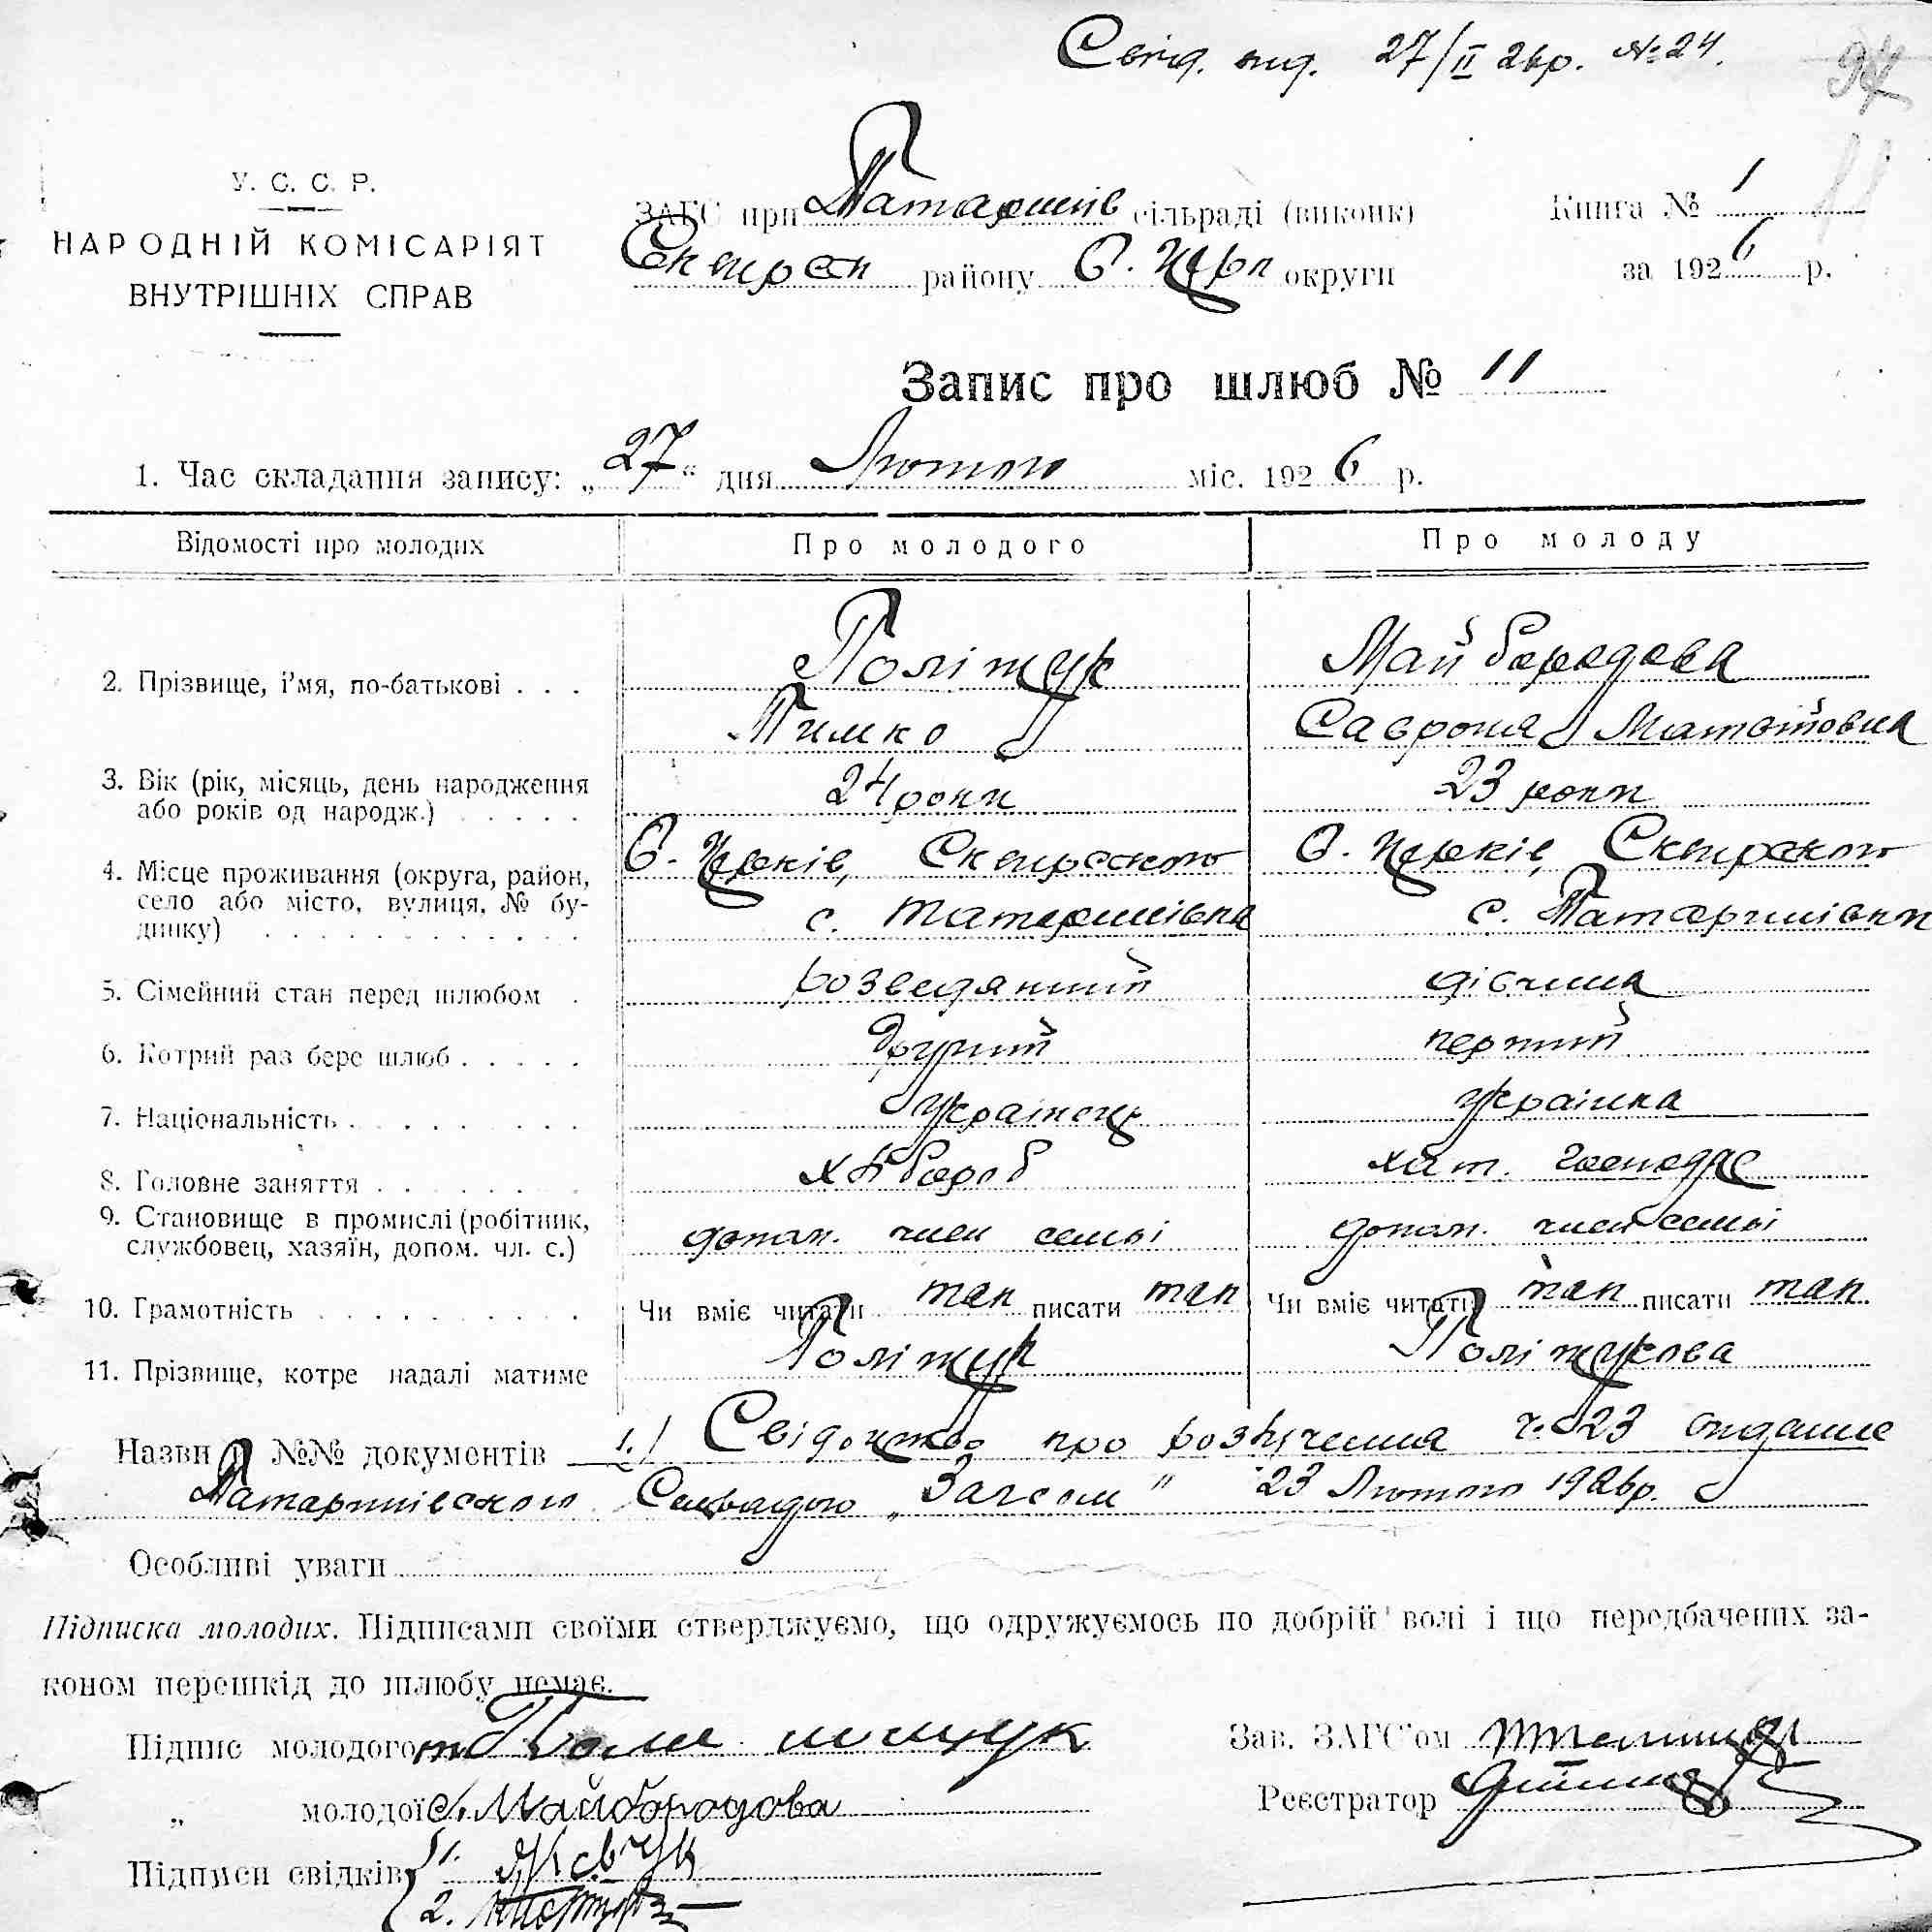 Свід. вид. 27/II 26р. № 24.
94
11
У. С. С. Р.
НАРОДНІЙ КОМІСАРІЯТ
ВНУТРІШНІХ СПРАВ
ЗАГС при Татаринів сільраді (виконк)
Сквирськ району Б. Церк округи
Книга № 1
за 1926 р.
Запис про шлюб № 11
1. Час складання запису: „27“ дня Лютого міс. 1926 р.
Відомості про молодих Про молодого Про молоду
2. Прізвище, і'мя, по-батькові . . . Поліщук Майбородова
Тимко Савроня Мататовна
3. Вік (рік, місяць, день народження 24 роки 23 роки
або років од народж.) . . . . .
4. Місце проживання (округа, район, Б. Церків, Сквирського Б. Церків, Сквирського
село або місто, вулиця, № бу- с. Татаринівка с. Татаринівки
динку) . . . . . . . . . . . .
5. Сімейний стан перед шлюбом . розведяний дівчина
6. Котрий раз бере шлюб . . . . . другий перший
7. Національність . . . . . . . . Українець Українка
8. Головне заняття . . . . . . . хлібороб хат. господар
9. Становище в промислі (робітник, допом. член семьі допом. член семьі
службовец, хазяїн, допом. чл. с.)
10. Грамотність . . . . . . . . . Чи вміє читати так писати так Чи вміє читати так писати так
11. Прізвище, котре надалі матиме Поліщук Поліщукова
Назви й №№ документів 1.) Свідоцтво про розлучення ч. 23 видане
Татаринівського Сельрадою „Загсом" 23 Лютого 1926р.
Особливі уваги
Підписка молодих. Підписами своїми стверджуємо, що одружуємось по добрій волі і що передбачених за-
коном перешкід до шлюбу немає.
Підпис молодого т Полищук
Зав. ЗАГС'ом
„ молодої С. Майбородова
Реєстратор
Підписи свідків 1.
2.